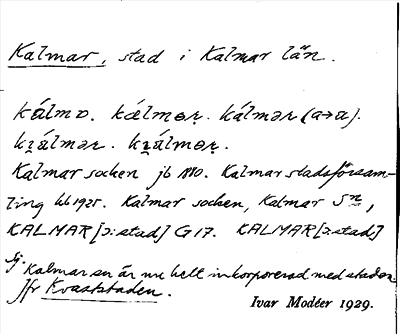 Kalmar, stad i Kalmar län.
kálmɒ. kælmər. kálmər (a→a).
kɪálmər. kɪálmər.
Kalmar socken jb 1880. Kalmar stadsförsam-
ling kb 1925. Kalmar socken, Kalmar Sn,
KALMAR [ɔ: stad] G 17. KALMAR [ɔ: stad]
Ej Kalmar sn är nu helt inkorporerad med staden.
Jfr Kvaststaden.
Ivar Modéer 1929.